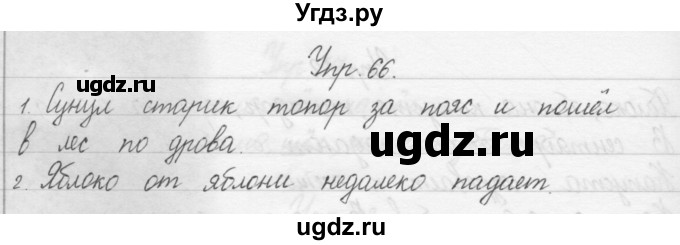 Угдз.ру
Упр. 66.
1. Сунул старик топор за пояс и пошёл
в лес по дрова.
угдз.ру
2. Яблоко от яблони недалеко падает.
угдз.ру